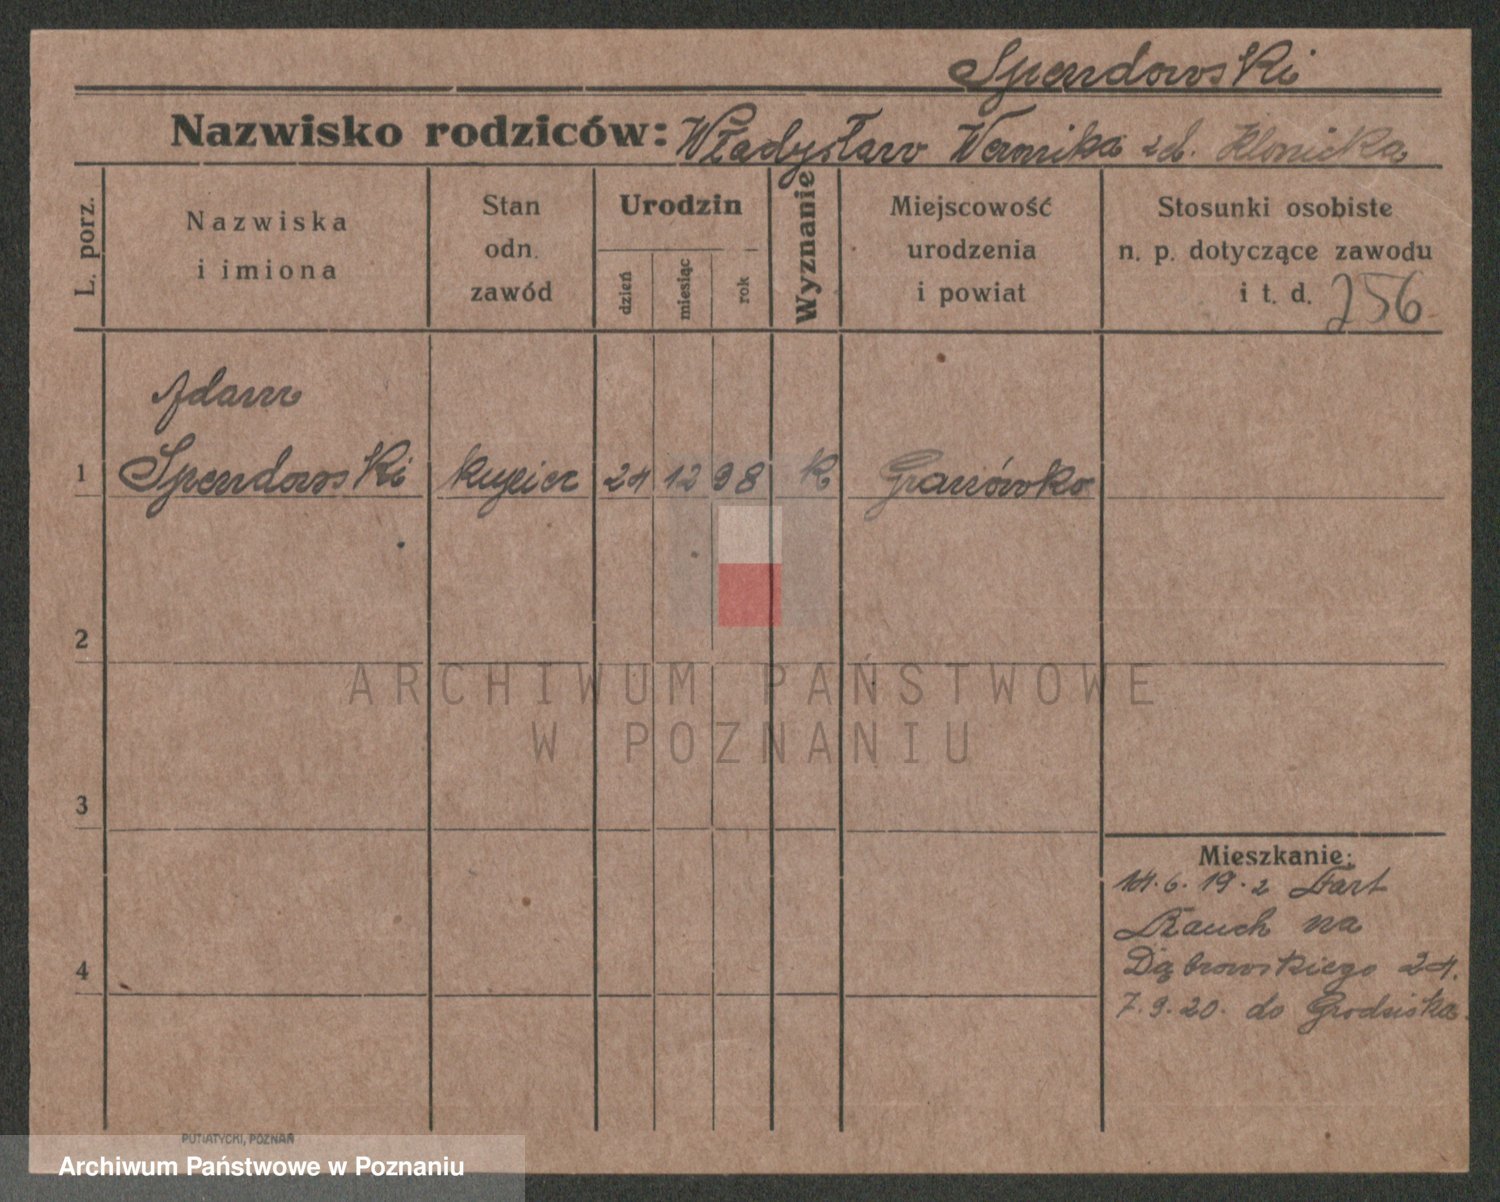 Spendowski
Nazwisko rodziców: Władysław Weronika zd. Klonicka
L. porz.
Nazwiska
i imiona
Stan
odn.
zawód
Urodzin
dzień
miesiąc
rok
Wyznanie
Miejscowość
urodzenia
i powiat
Stosunki osobiste
n. p. dotyczące zawodu
i t. d. 256
Adam
1 Spendowski kupiec 24 12 98 k Granówko
2
3
4
ARCHIWUM PAŃSTWOWE
W POZNANIU
Mieszkanie:
14.6.19. z
Rauch na
Dąbrowskiego 24.
7.9.20. do Grodziska
PUTIATYCKI, POZNAŃ
Archiwum Państwowe w Poznaniu